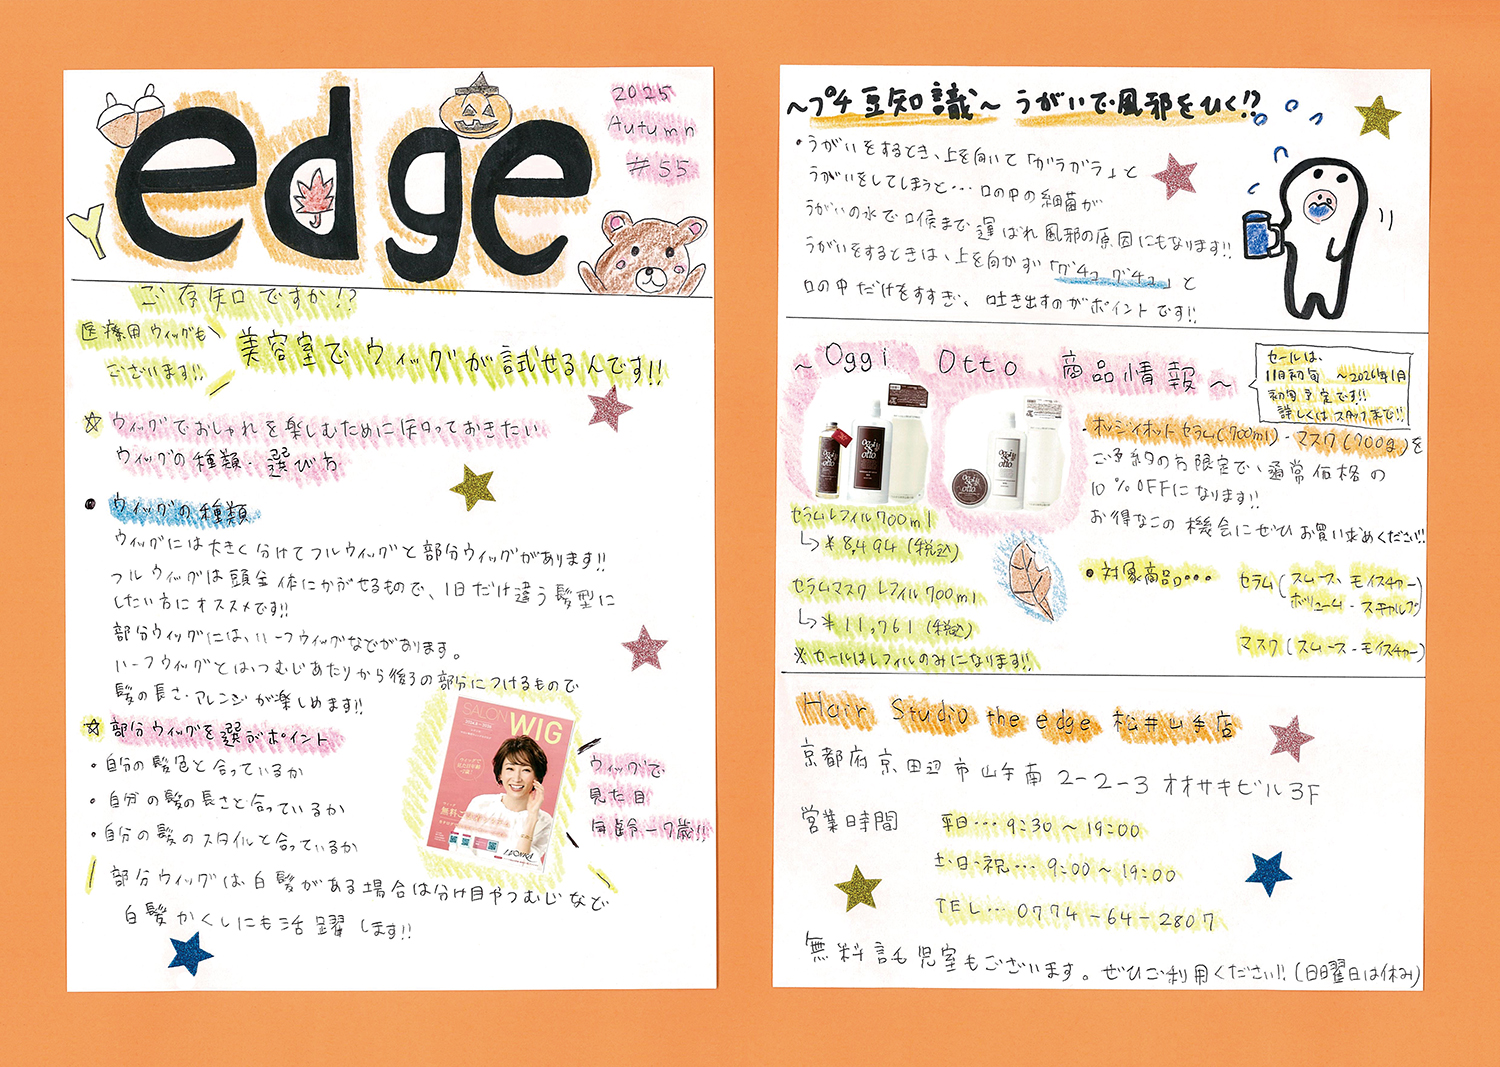 edge
2025
Autumn
#55
ご存知ですか!?
医療用ウィッグも
ございます!!
美容室でウィッグが試せるんです!!
☆ ウィッグでおしゃれを楽しむために知っておきたい
ウィッグの種類・選び方
● ウィッグの種類
ウィッグには大きく分けてフルウィッグと部分ウィッグがあります!!
フルウィッグは頭全体にかぶせるもので、1日だけ違う髪型に
したい方にオススメです!!
部分ウィッグには、ハーフウィッグなどがあります。
ハーフウィッグとは、つむじあたりから後ろの部分につけるもので
髪の長さ・アレンジが楽しめます!!
☆ 部分ウィッグを選ぶポイント
・自分の髪色と合っているか
・自分の髪の長さと合っているか
・自分の髪のスタイルと合っているか
部分ウィッグは白髪がある場合は分け目やつむじなど
白髪かくしにも活躍します!!
SALON
WIG
ウィッグで
見た目
年齢-7歳!!
~プチ豆知識~ うがいで風邪をひく!?
・うがいをするとき、上を向いて「ガラガラ」と
うがいをしてしまうと…口の中の細菌が
うがいの水で口候まで運ばれ風邪の原因にもなります!!
うがいをするときは、上を向かず「グチュグチュ」と
口の中だけをすすぎ、吐き出すのがポイントです!!
~ Oggi Otto 商品情報 ~
セールは、
11月初旬 ~2026年1月
初旬予定です!!
詳しくはスタッフまで!!
・オッジィオットセラム(700ml)・マスク(700g)を
ご予約の方限定で、通常価格の
10%OFFになります!!
お得なこの機会にぜひお買い求めください!!
oggi
otto
oggi
otto
セラムレフィル700ml
↳¥8,494(税込)
セラムマスクレフィル700ml
↳¥11,761(税込)
※セールはレフィルのみになります!!
●対象商品… セラム(スムース、モイスチャー)
ボリューム・スキャルプ
マスク(スムース・モイスチャー)
Hair Studio the edge 松井山手店
京都府京田辺市山手南2-2-3オオサキビル3F
営業時間 平日…9:30~19:00
土・日・祝…9:00~19:00
TEL…0774-64-2807
無料託児室もございます。ぜひご利用ください!!(日曜日は休み)